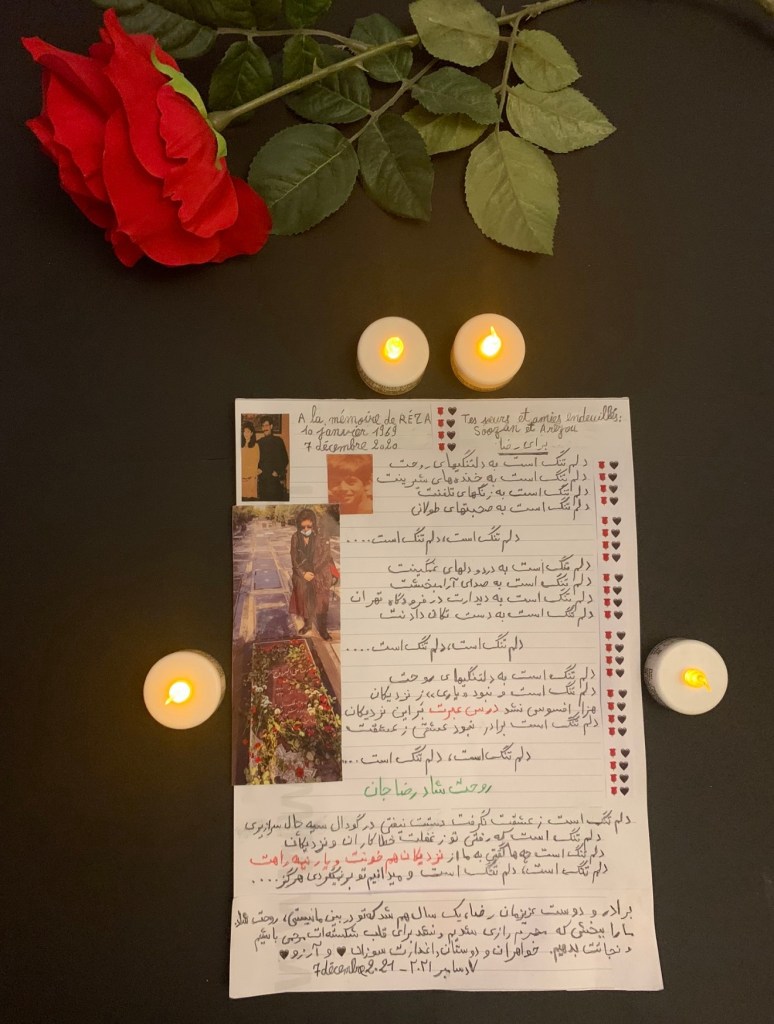 A la mémoire de RÉZA
10 janvier 1969
7 décembre 2020
Tes seurs et amies endeuillés:
Soozan et Arezou
برای رضا
دلم تنگ است به دلتنگیهای روحت
دلم تنگ است به خنده‌های شیرینت
دلم تنگ است به زنگهای تلفنت
دلم تنگ است به صحبتهای طولان
دلم تنگ است، دلم تنگ است....
دلم تنگ است به درد دلهای غمگینت
دلم تنگ است به صدای آرامبخشت
دلم تنگ است به دیدارت در فرودگاه تهران
دلم تنگ است به دست تکان دادنت
دلم تنگ است، دلم تنگ است....
دلم تنگ است به دلتنگیهای روحت
دلم تنگ است و نبود یاری، ز نزدیکان
هزار افسوس نشد درس عبرت بر این نزدیکان
دلم تنگ است برادر نبود عشقی ز عشقت
دلم تنگ است، دلم تنگ است...
روحت شاد رضا جان
دلم تنگ است ز عشقت گرفت دستت نیفتی در گودال سیه چال سرازیری
دلم تنگ است که رفتی تو ز غفلت خطاکاران و نزدیکان
دلم تنگ است چه ها گفتی به ما از نزدیکان هم خونت و یار نیمه راهت
دلم تنگ است، دلم تنگ است و میدانیم تو برنمیگردی هرگز....
برادر و دوست عزیزمان رضا، یک سال هم شد که تو در بین ما نیستی، روحت شاد.
ما را ببخش که محرم رازی نشدیم و نشد برای قلب شکسته‌ات مرحمی باشیم
و نجاتت بدهیم. خواهران و دوستان داغدارت سوزان ♥ و آرزو ♥
7 décembre 2021 - ۲۰۲۱ دسامبر ۷